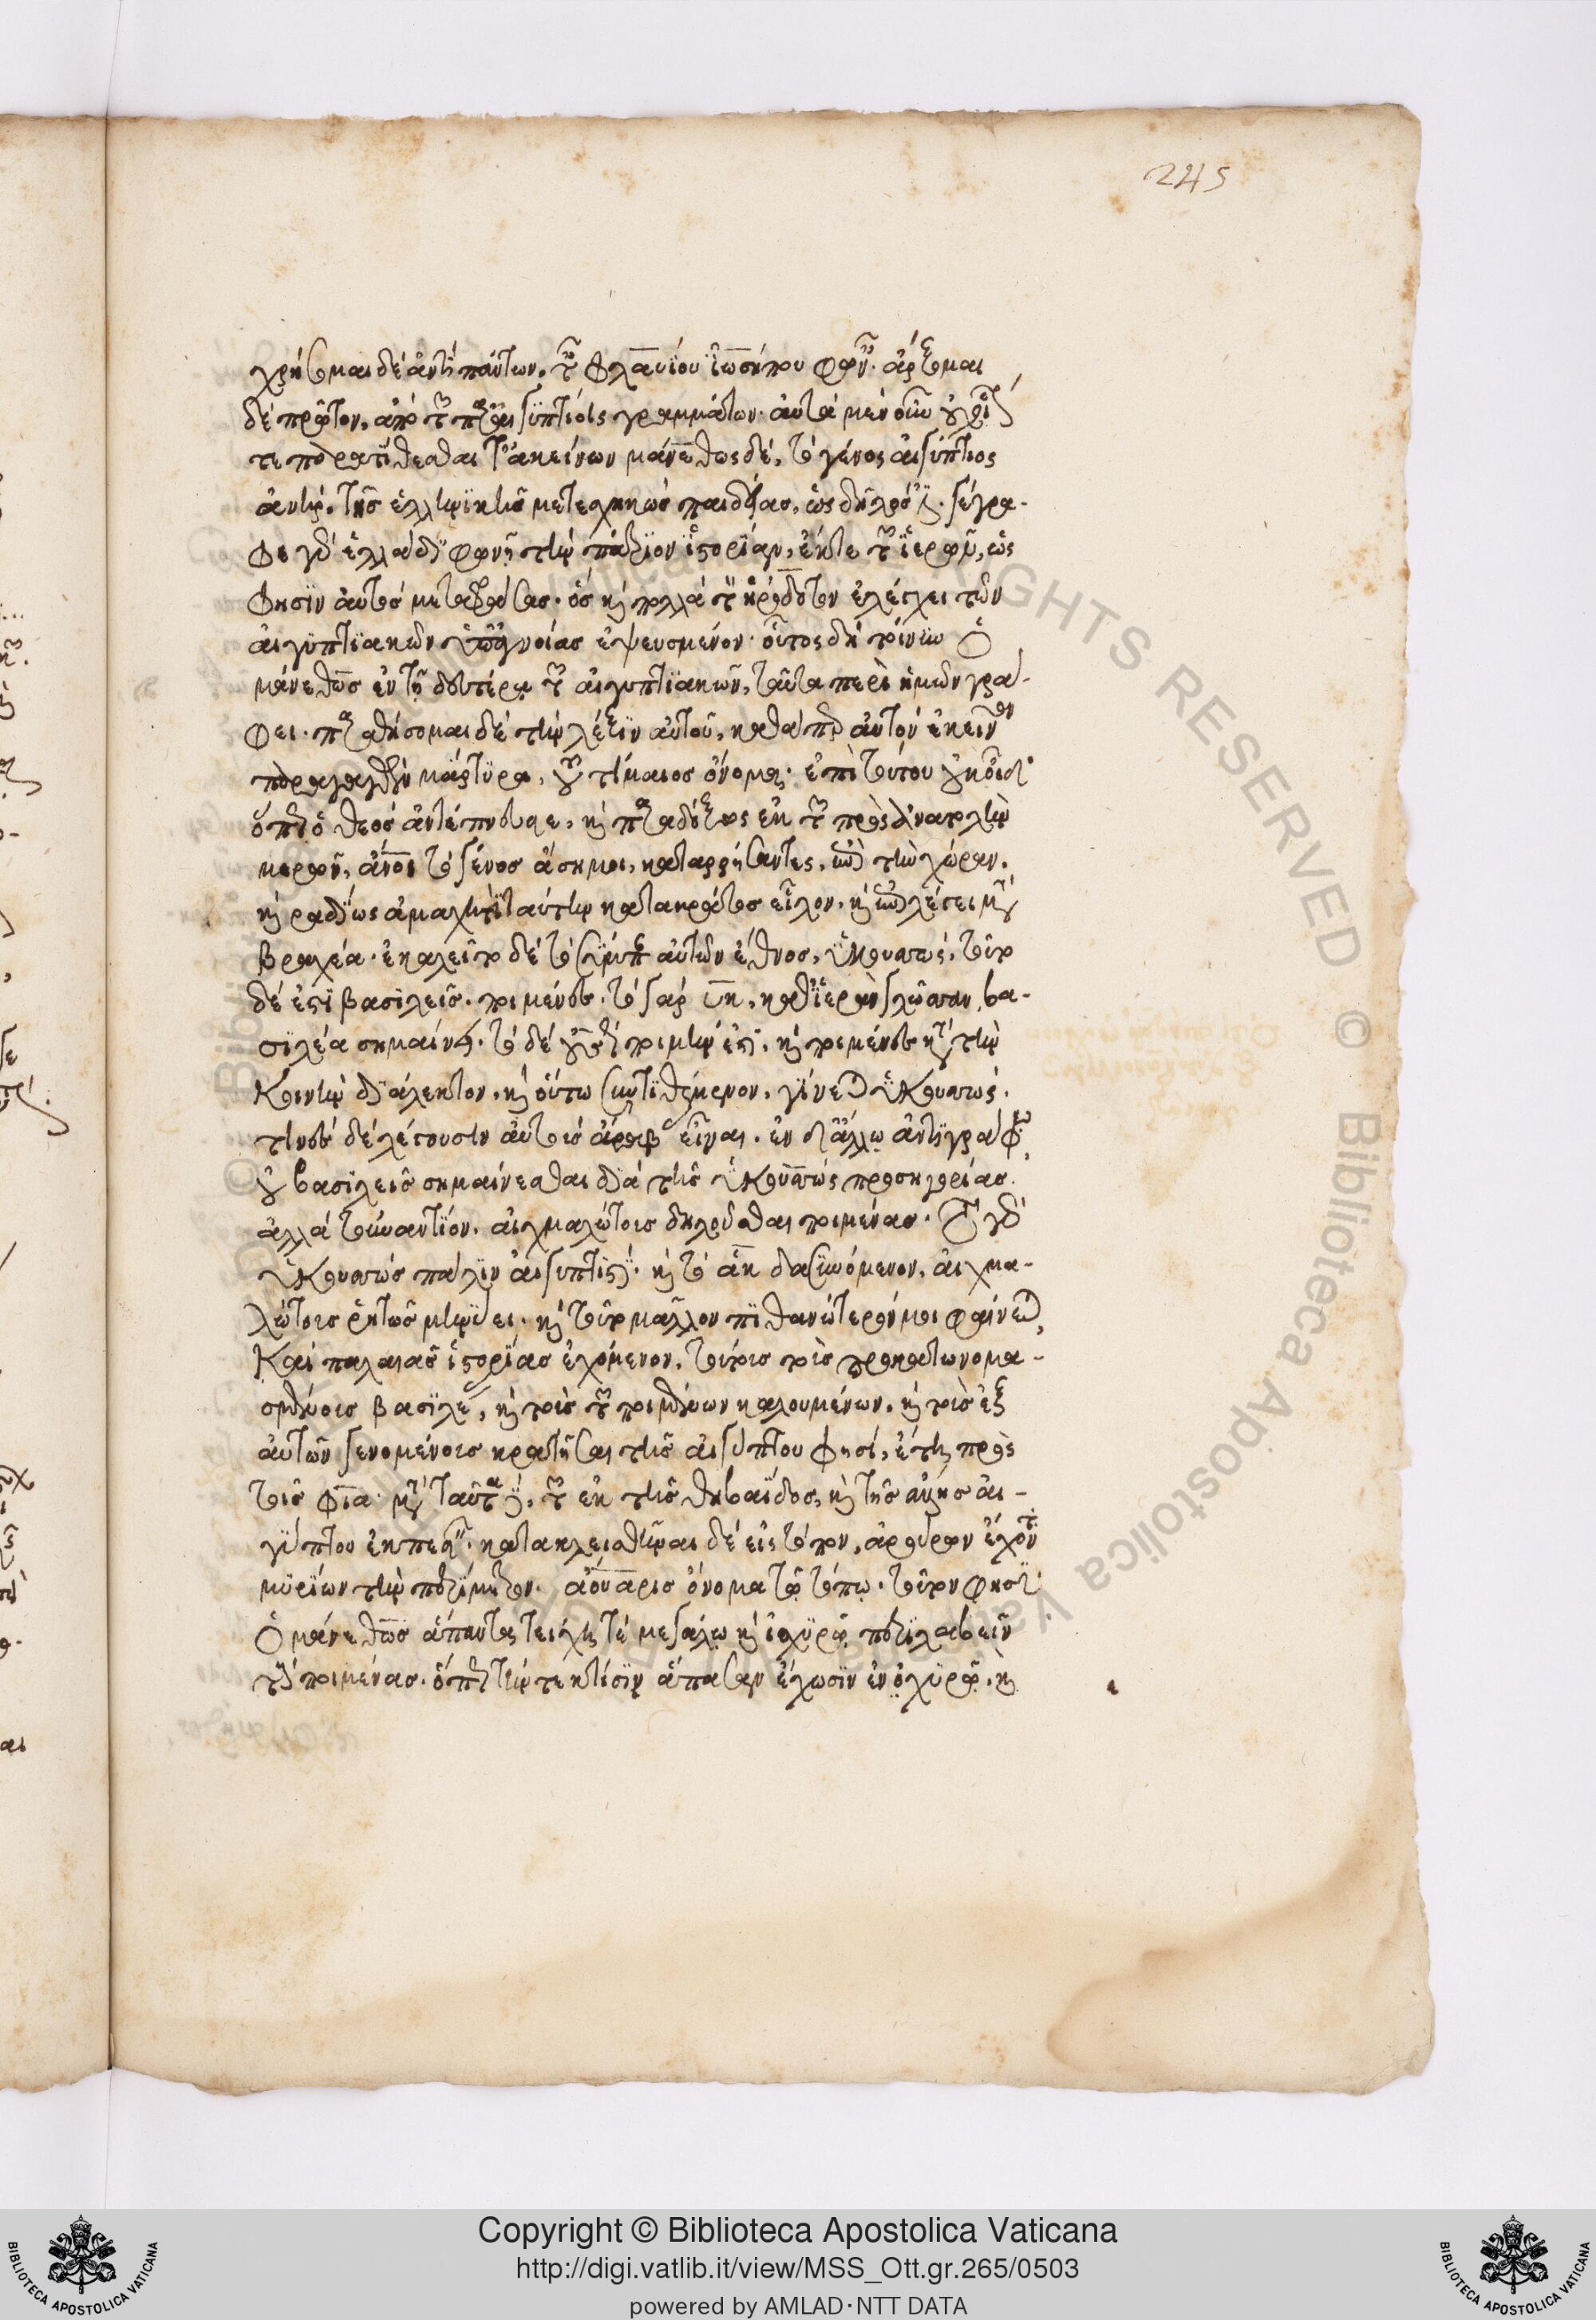 245
χρήσομαι δὲ ἀντὶ πάντων, τῇ Φλαυΐου Ἰωσήπου φωνῇ. ἄρξομαι
δὲ πρῶτον, ἀπὸ τῶν παρ' αἰγυπτίοις γραμμάτων. αὐτὰ μὲν οὖν οὐχ οἷόν
τε παρατίθεσθαι τἀκείνων μάνεθως δὲ, τὸ γένος αἰγύπτιος
ἀνὴρ, τῆς ἑλληνικῆς μετεσχηκὼς παιδείας, ὡς δῆλός ἐστι. γέγρα-
φε γὰρ ἑλλάδι φωνῇ τὴν πάτριον ἱστορίαν, ἔκ τε τῶν ἱερῶν, ὡς
φησὶν αὐτὸς μεταφράσας. ὃς καὶ πολλὰ τὸν ἡρόδοτον ἐλέγχει τῶν
αἰγυπτιακῶν ὑπ' ἀγνοίας ἐψευσμένον. οὗτος δὴ τοίνυν ὁ
μάνεθως ἐν τῇ δευτέρᾳ τῶν αἰγυπτιακῶν, ταῦτα περὶ ἡμῶν γρά-
φει. παραθήσομαι δὲ τὴν λέξιν αὐτοῦ, καθάπερ αὐτὸν ἐκεῖνον
παραγαγὼν μάρτυρα,
τίμαιος ὄνομα. ἐπὶ τούτου οὐκ οἶδ'
ὅπως ὁ θεὸς ἀντέπνευσε, καὶ παραδόξως ἐκ τῶν πρὸς ἀνατολὴν
μερῶν, ἄνοι τὸ γένος ἄσημοι, καταρρήσαντες, ἐπὶ τὴν χώραν,
καὶ ῥαδίως ἀμαχητὶ ταύτην κατακράτος εἷλον. καὶ
βραχέα. ἐκαλεῖτο δὲ τὸ σύμπαν αὐτῶν ἔθνος, ὑκουσσώς. τοῦτο
δέ ἐστι βασιλεῖς ποιμένες. τὸ γὰρ ὓκ, καθ' ἱερὰν γλῶσσαν βα-
σιλέα σημαίνει. τὸ δὲ
ποιμήν ἐστι, καὶ ποιμένες κατὰ τὴν
κοινὴν διάλεκτον, καὶ οὕτω συντιθέμενον, γίνεται ὑκουσσώς.
τινὲς δὲ λέγουσιν αὐτοὺς ἄραβας εἶναι. ἐν δ' ἄλλῳ ἀντιγράφῳ
οὐ βασιλεῖς σημαίνεσθαι διὰ τῆς ὑκουσσὼς προσηγορίας.
ἀλλὰ τοὐναντίον, αἰχμαλώτοις δηλοῦσθαι ποιμένας. τὸ γὰρ
ὑκουσσὼς πάλιν αἰγυπτιστί. καὶ τὸ ἂκ δασυνόμενον, αἰχμα-
λώτοις ῥητῶς μηνύει. καὶ τοῦτο μᾶλλον πιθανώτερόν μοι φαίνεται,
καὶ παλαιᾶς ἱστορίας ἐχόμενον. τούτοις τοὺς προκατωνομα-
σμένοις βασιλέας, καὶ τοὺς τῶν ποιμένων καλουμένων, καὶ τοὺς ἐξ
αὐτῶν γενομένοις κρατῆσαι τῆς αἰγύπτου φησὶ, ἔτη πρὸς
τοῖς φῖα. μετὰ ταῦτα δὲ, τῶν ἐκ τῆς θηβαΐδος, καὶ τῆς ἄλλης αἰ-
γύπτου ἐκπεσεῖν. κατακλεισθῆναι δὲ εἰς τόπον, ἀρουρῶν ἔχοντα
μυρίων τὴν περίμετρον. ἀούαρις ὄνομα τῷ τόπῳ. τοῦτόν φησιν
ὁ μάνεθως ἅπαντα τείχη τὲ μεγάλῳ καὶ ἰσχυρῷ περιλαβεῖν
τοὺς ποιμένας. ὅπως τήν τε κτίσιν ἅπασαν ἔχωσιν ἐν ὀχυρῷ, καὶ
Copyright © Biblioteca Apostolica Vaticana
http://digi.vatlib.it/view/MSS_Ott.gr.265/0503
powered by AMLAD·NTT DATA
BIBLIOTECA APOSTOLICA VATICANA
BIBLIOTECA APOSTOLICA VATICANA